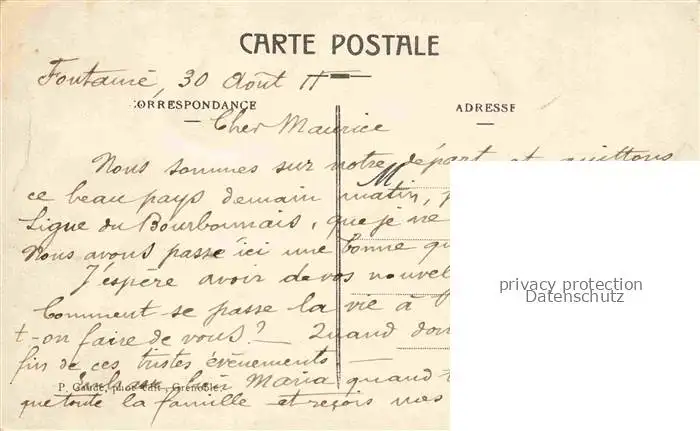 CARTE POSTALE
Fontaine, 30 Août 11
CORRESPONDANCE
ADRESSE
Cher Maurice
Nous sommes sur notre départ et quittons
ce beau pays demain matin,
M
Ligne du Bourbonnais, que je ne
Nous avons passé ici une bonne
J'espère avoir de vos
Comment se passe la vie à
t-on faire de vous? - Quand
fin de ces tristes évènements -
Maria quand
P. Gaude, phot. édit., Grenoble.
que toute la famille et reçois mes
privacy protection
Datenschutz